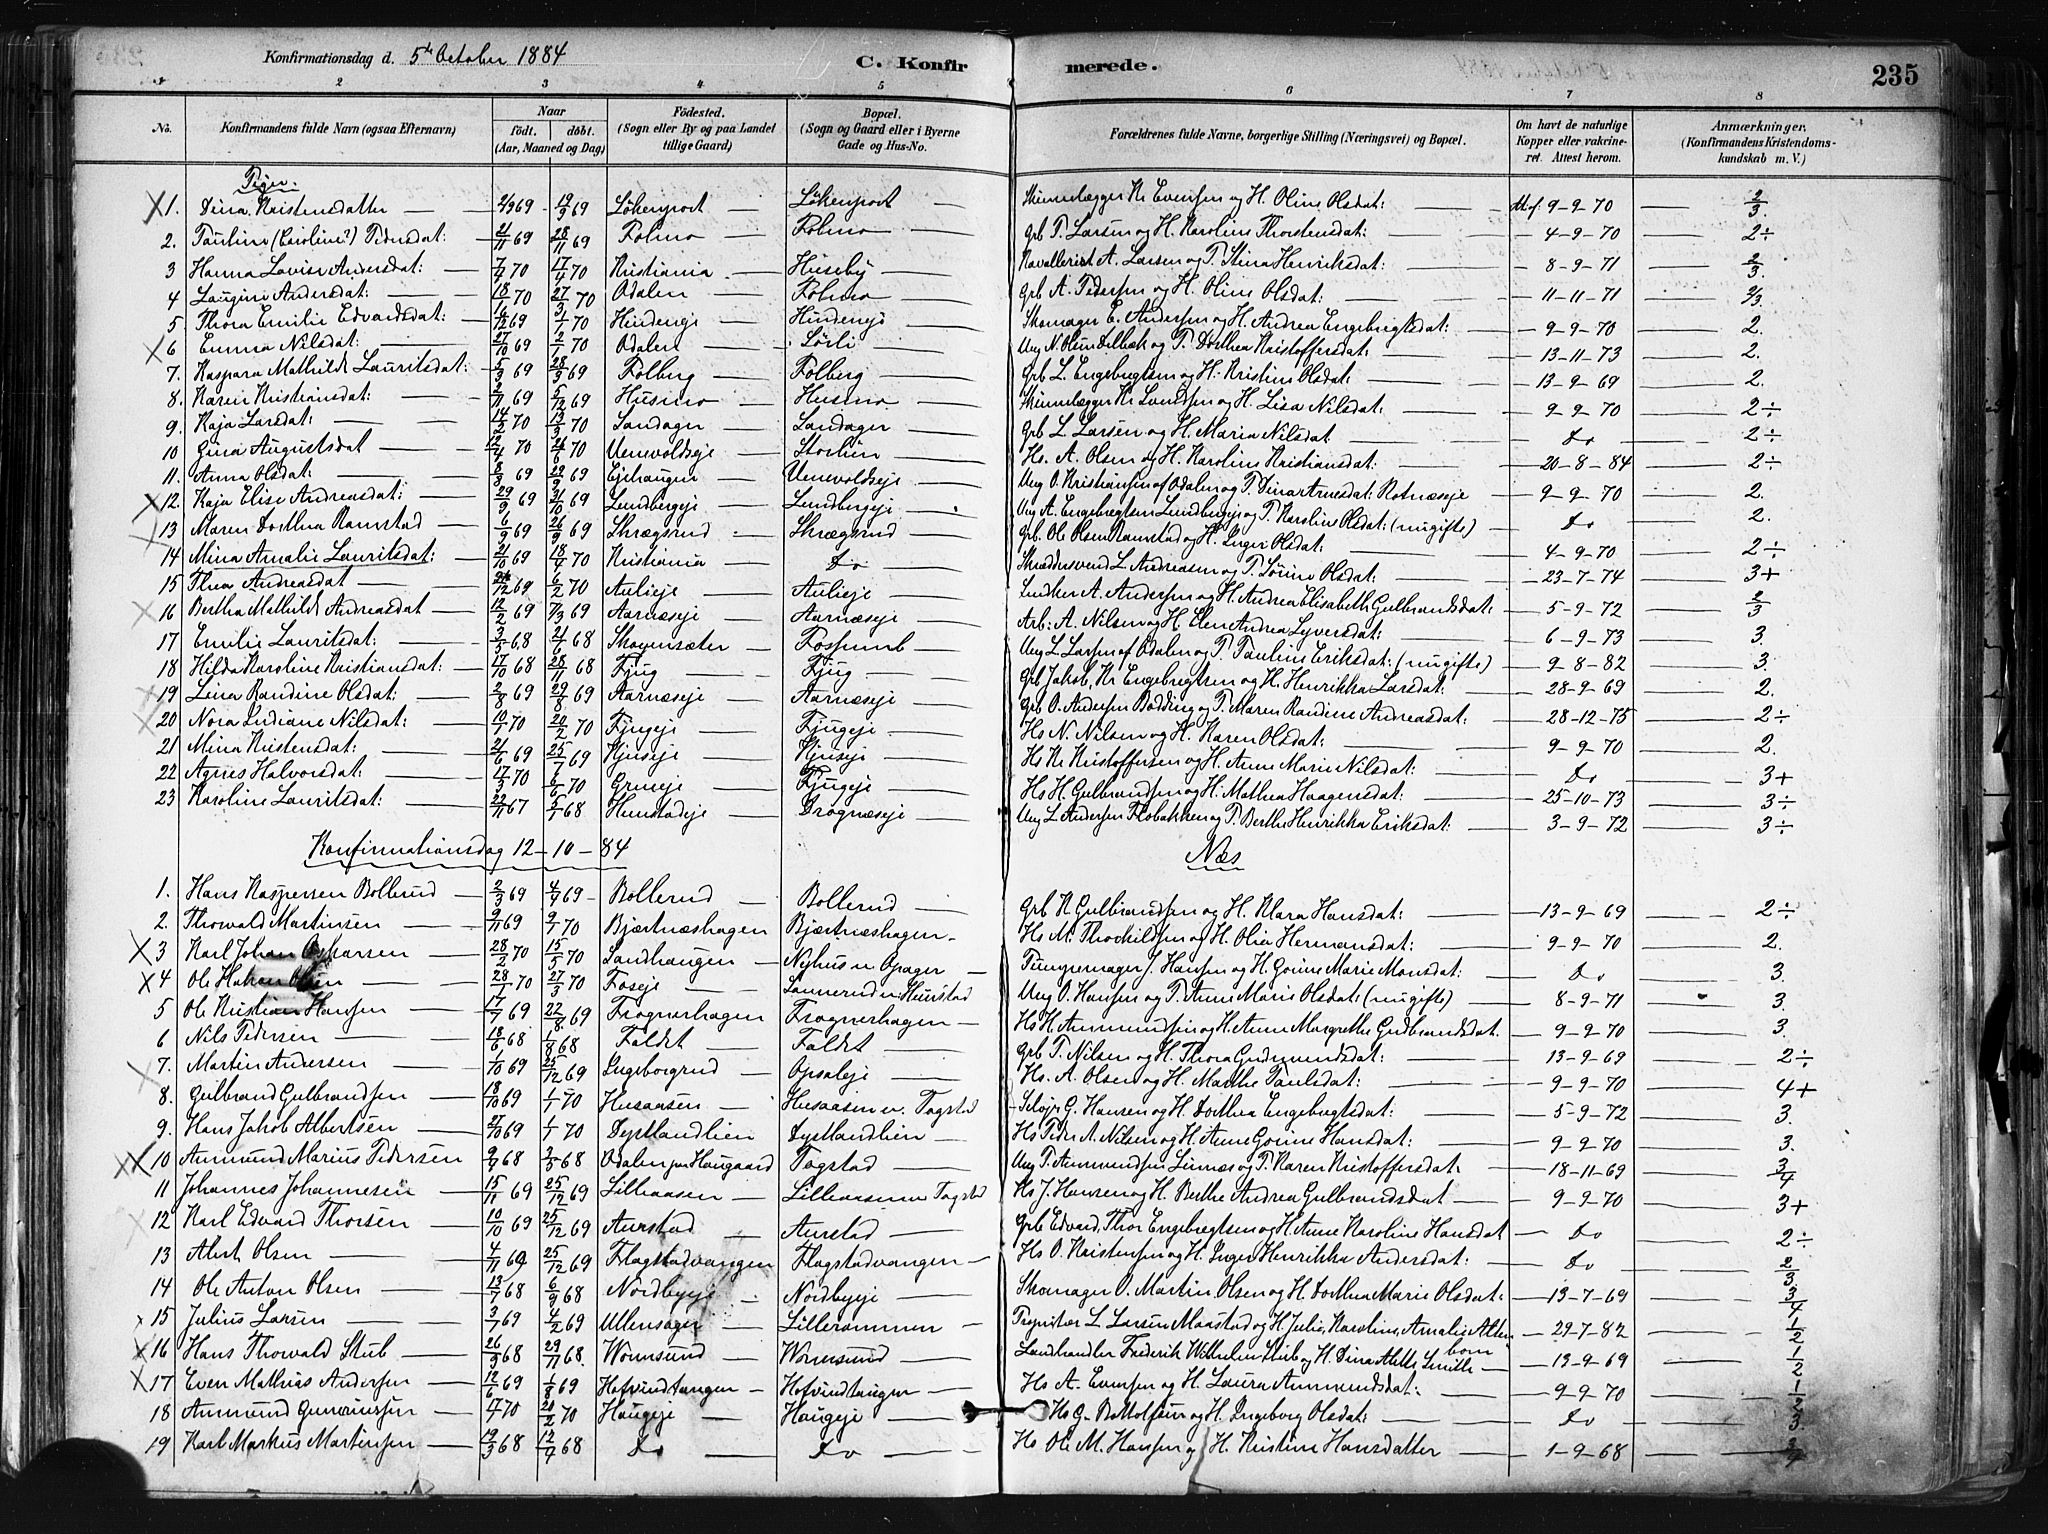 Konfirmationsdag d. 5te October 1884 C. Konfir merede. 235
1 2 3 4 5 6 7 8
No. Konfirmandens fulde Navn (ogsaa Efternavn) Naar født. døbt. (Aar, Maaned og Dag) Fødested. (Sogn eller By og paa Landet tillige Gaard) Bopæl. (Sogn og Gaard eller i Byerne Gade og Hus-No. Forældrenes fulde Navne, borgerlige Stilling (Næringsvei) og Bopæl. Om havt de naturlige Kopper eller vakcineret. Attest herom. Anmærkninger. (Konfirmandens Kristendomskundskab m. V.)
Piger:
1. Dina Kristensdatter 2/9 69 19/9 69 Løkenport Løkenport Kr Evensen og H. Oline Olsdat: Att. 9-9-70 2/3.
2. Pauline (Caroline?) Pedersdat: 21/11 69 28/11 69 Folmo Folmo Grb P. Larsen og H. Karoline Thorstensdat: 4-9-70 2÷
3 Hanna Lovise Andersdat: 7/4 70 17/4 70 Kristiania Huseby Kavallerist A. Larsen og P. Stina Henriksdat: 8-9-71 2/3.
4 Laugine Andersdat: 70 27/ 70 Odalen Folmo Grb A. Pedersen og H. Oline Olsdat: 11-11-71 2/3.
5. Thora Emilie Edvardsdat: 16/12 69 3/1 70 Hindeneje Hindeneje Skomager E. Andersen og H. Andrea Engebregtsdat: 9-9-70 2.
6 Emma Nilsdat: 27/10 69 2/1 70 Odalen Sørli Ung N. og P. Dorthea Kristoffersdat: 13-11-73 2.
7. Kaspara Mathilde Lauritsdat: 5/3 69 28/3 69 Folberg Folberg Grb L. Engebregtsen og H. Kristine Olsdat: 13-9-69 2.
8. Karen Kristiansdat: 2/11 69 5/12 69 Husmo Husmo Kr Svendsen og H. Lisa Nilsdat: 9-9-70 2÷
9. Kaja Larsdat: 14/2 70 13/3 70 Sandager Sandager Grb L. Larsen og H. Maria Nilsdat Do 2÷
10 Gina Augustsdat 12/4 70 26/6 70 Uenvoldseje Storlien Hs. A. Olsen og H. Karoline Kristiansdat: 20-8-84 2÷
11. Anna Olsdat: 8/3 69 29/9 69 Ejehaugen Uenvoldseje Ung O. Kristiansen af Odalen og P. Dina Arnesdat: Rotnæseje 9-9-70 2.
12. Kaja Elise Andreasdat: 29/9 69 31/10 69 Lundbergeje Lundbergeje Ung A. Engebregtsen Lundbergeje og P. Karoline Olsdat: (nu gifte) Do 2.
13 Maren Dorthea Ramstad 6/9 69 26/9 69 Skrægsrud Skrægsrud Grb. Ole Olsen Ramstad og H. Inger Olsdat: 4-9-70 2÷
14 Mina Amalie Lauritsdat: 21/10 69 18/4 70 Kristiania Do Skræddersvend L. Andreasen og P. Sørine Olsdat: 23-7-74 3+
15 Thea Andreasdat 24/12 69 6/2 70 Aulieje Aulieje A. Andersen og H. Andrea Elisabeth Gulbrandsdat: 5-9-72 2/3
16 Bertha Mathilde Andreasdat 12/2 69 7/3 69 Aarnæseje Aarnæseje Arb: A. Nilsen og H. Elen Andrea Syversdat: 6-9-73 3.
17 Emilie Lauritsdat: 3/5 68 21/6 68 Skogensæter Fosumb Ung L. Larsen af Odalen og P. Pauline Eriksdat: (nu gifte) 9-8-82 3.
18 Hilda Karoline Kristiansdat: 17/10 68 28/11 68 Fjug Fjug Grb Jakob, Kr Engebregtsen og H. Henrikka Larsdat: 28-9-69 2.
19 Lina Randine Olsdat: 2/8 69 29/8 69 Aarnæseje Aarnæseje Grb O. Andersen Bodding og P. Maren Randine Andreasdat: 28-12-75 2÷
20 Nora Indiane Nilsdat: 10/1 70 20/2 70 Fjugeje Fjugeje Hs N. Nilsen og H. Karen Olsdat: 9-9-70 2.
21 Mina Kristensdat: 21/6 69 25/7 69 Hjuseje Hjuseje Hs Kr Kristoffersen og H. Anne Marie Nilsdat: Do 3+
22 Agnes Halvorsdat: 17/3 70 /6 70 Grueeje Fjugeje Hs H. Gulbrandsen og H. Mathea Haagensdat: 25-10-73 3÷
23 Karoline Lauritsdat: 22/11 67 5/1 68 Henstadeje Drognæseje Ung L. Andersen Flobakken og P. Berthe Henrikka Eriksdat: 3-9-72 3÷
Konfirmationsdag 12-10-84 Næs
1. Hans Kaspersen Bollerud 2/3 69 4/4 69 Bollerud Bollerud Grb K Gulbrandsen og H. Klara Hansdat: 13-9-69 2÷
2. Thorvald Martinsen 9/11 69 9/1 70 Bjertnæshagen Bjertnæshagen Hs M. Thorkildsen og H. Olia Hermansdat: 9-9-70 2.
3 Karl Johan Oskarsen 28/2 70 15/5 70 Sandhaugen Nyhus u Opager J. Hansen og H. Gorine Marie Monsdat: Do 3.
4 Ole Hakon Olsen 28/1 70 27/3 70 Foseje Sannerud u. Henstad Ung O. Hansen og P. Anne Marie Olsdat: (nu gifte) 8-9-71 3.
5 Ole Kristian Hansen 17/7 69 22/8 69 Frognerhagen Frognerhagen Hs H. Anmundsen og H. Anne Margrethe Gudbrandsdat. 9-9-70 3.
6 Nils Pedersen 18/6 68 1/8 68 Faldet Faldet Grb P. Nilsen og H. Thora Gudmundsdat: 13-9-69 2÷
7. Martin Andersen 1/10 69 25/12 69 Ingeborgrud Opsaleje Hs. A. Olsen og H. Marthe Paulsdat: 9-9-70 4+
8. Gulbrand Gulbrandsen 18/10 69 1/1 70 Husaasen Husaasen u. Togstad Selvejer G. Hansen og H. Dorthea Engebregtsdat: 5-9-72 3.
9. Hans Jakob Albertsen 27/10 69 1/1 70 Dystlandlien Dystlandlien Hs Peder A. Nilsen og H. Anne Gorine Hansdat: 9-9-70 3.
10 Anmund Marius Pedersen 9/4 68 3/5 68 Odalen paa Haugaard Togstad Ung P. Anmundsen Linnæs og P. Karen Kristoffersdat: 18-11-69 3/4
11 Johannes Johannesen 15/11 69 25/12 69 Lilleaasen Lilleaasen u Togstad Hs J. Hansen og H. Berthe Andrea Gulbrandsdat 9-9-70 3+
12 Karl Edvard Thorsen 10/10 69 25/12 69 Aurstad Aurstad Grb Edvard, Thor Engebregtsen og H. Anne Karoline Hansdat Do 2÷
13 Albert Olsen 4/11 69 25/12 69 Flagstadvangen Flagstadvangen Hs O. Kristensen og H. Inger Henrikka Andersdat: Do 2/3
14 Ole Anton Olsen 13/7 68 6/9 68 Nordbyeje Nordbyeje Skomager O. Martin Olsen og H. Dorthea Marie Olsdat: 13-7-69 3/4
15 Julius Larsen 3/7 69 4/2 69 Ullensager Lillerommen Proprietær L. Larsen Maastad og H. Julie, Karoline, Amalie Alten 29-7-82 1/2
16 Hans Thorvald Stub 26/9 68 29/11 68. Wormsund Wormsund Landhandler Frederik Wilhelm Stub og H. Dina Aletta Smith born 13-9-69 1/2
17 Even Mathias Andersen 12/6 69 1/8 69 Hofvindtangen Hofvindtangen Hs A. Evensen og H. Laura Anmundsdat: 9-9-70 1/2
18 Anmund Gunerius /1 70 20/2 70 Haugeje Haugeje Hs G. Bottolfsen og H. Ingeborg Olsdat: Do 3
19 Karl Markus Martinsen 19/3 68 12/4 68 Do Do Hs Ole M. Hansen og H. Kristine Hansdatter 1-9-68 3/4